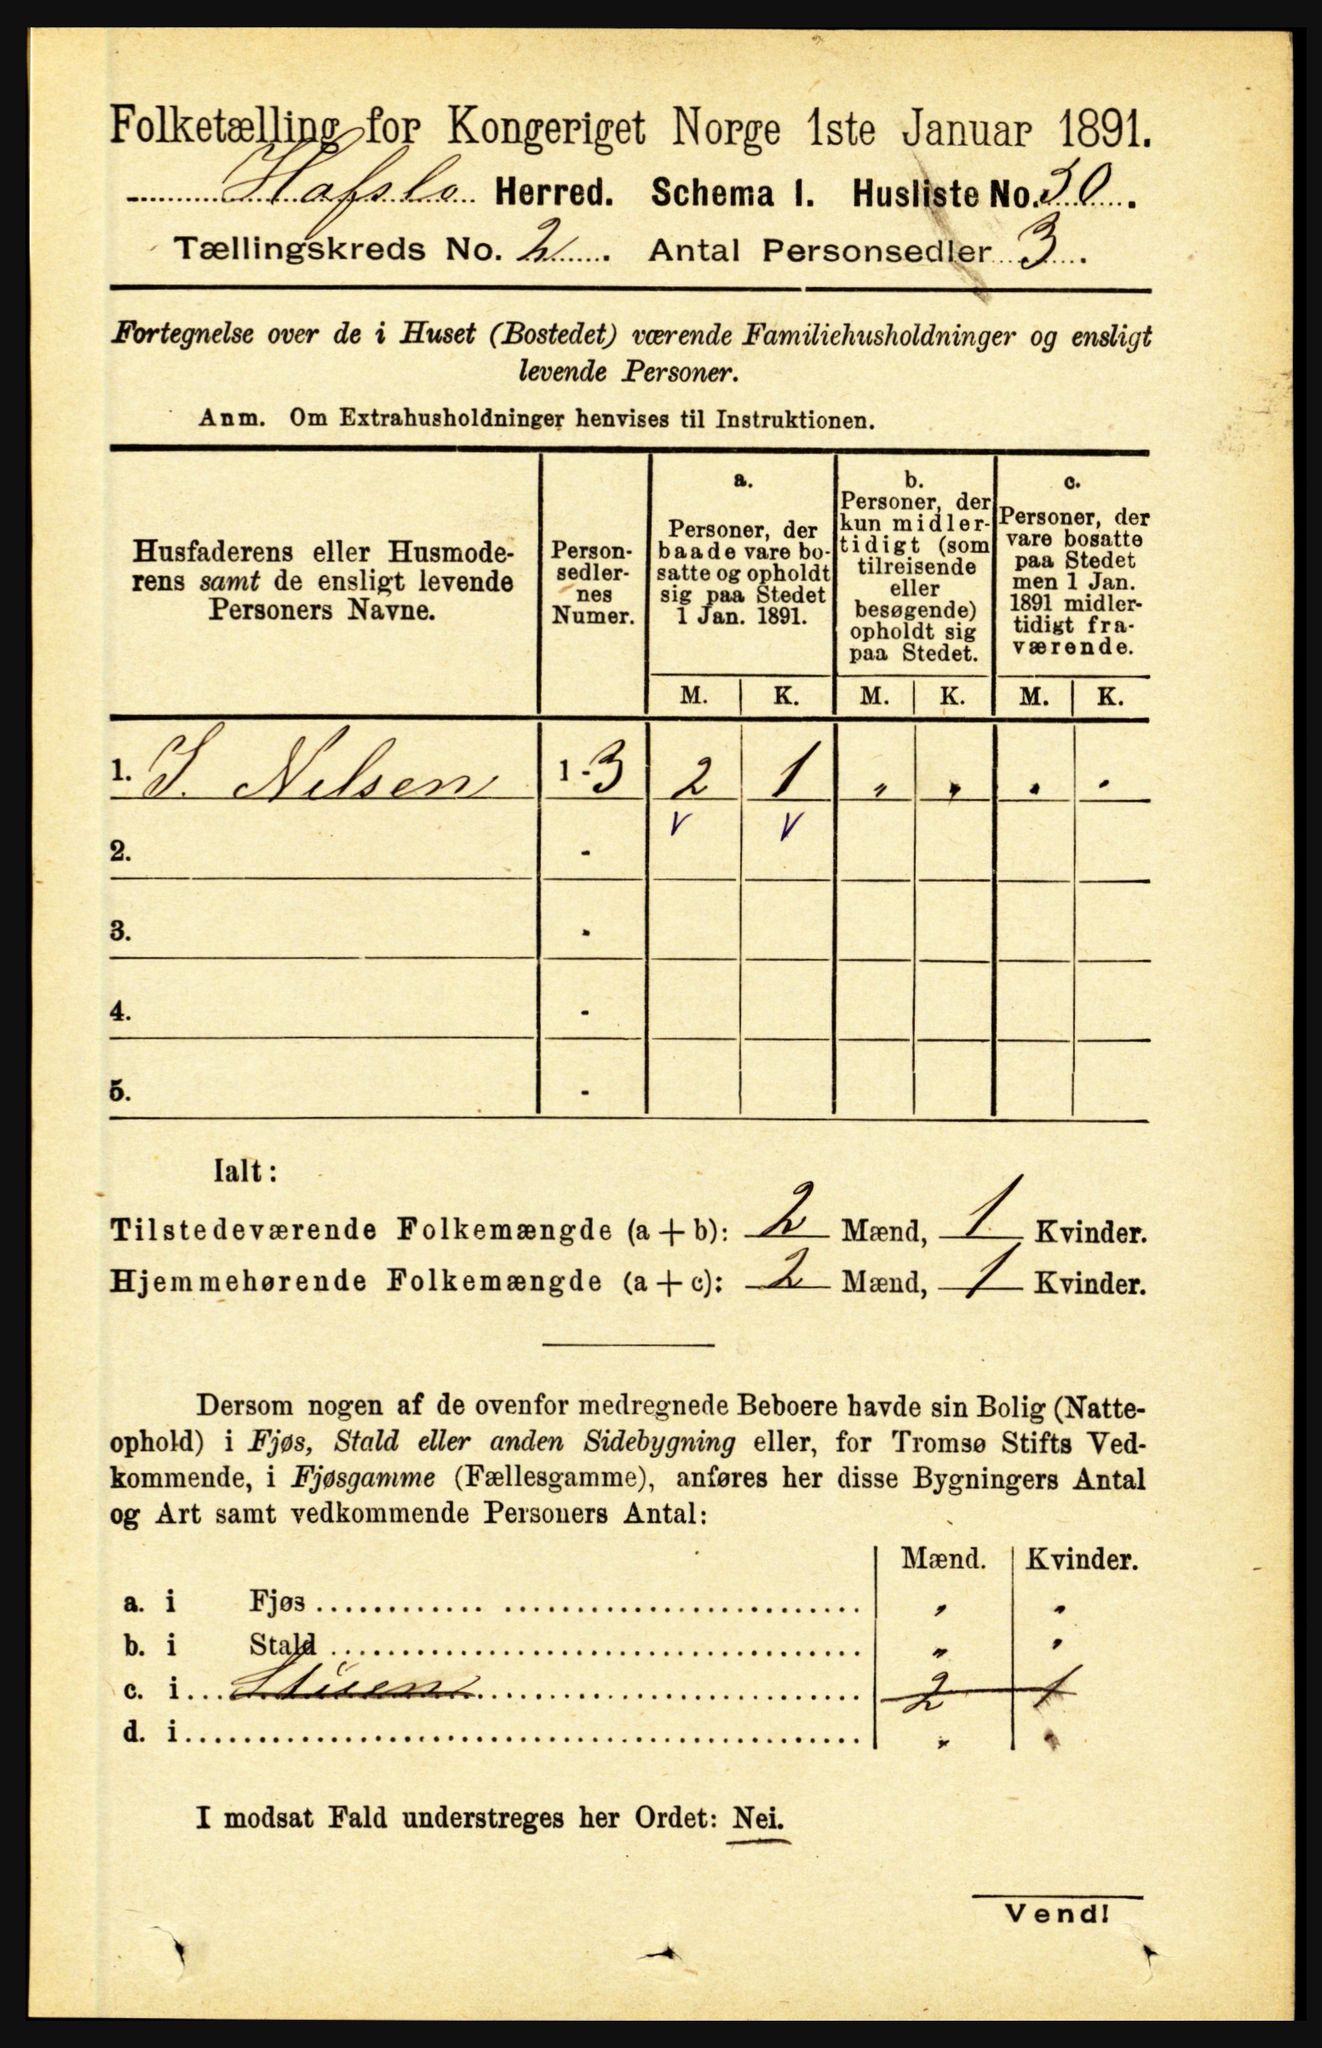 Folketælling for Kongeriget Norge 1ste Januar 1891.
Hafslo Herred. Schema I. Husliste No. 30.
Tællingskreds No. 2. Antal Personsedler 3.
Fortegnelse over de i Huset (Bostedet) værende Familiehusholdninger og ensligt
levende Personer.
Anm. Om Extrahusholdninger henvises til Instruktionen.
Husfaderens eller Husmode-
rens samt de ensligt levende
Personers Navne.
Person-
sedler-
nes
Numer.
a.
Personer, der
baade vare bo-
satte og opholdt
sig paa Stedet
1 Jan. 1891.
b.
Personer, der
kun midler-
tidigt (som
tilreisende
eller
besøgende)
opholdt sig
paa Stedet.
c.
Personer, der
vare bosatte
paa Stedet
men 1 Jan.
1891 midler-
tidigt fra-
værende.
M. K. M. K. M. K.
1. S. Nelsen 1-3 2 1 „ „ . .
V V
2. -
3. -
4. -
5. -
Ialt:
Tilstedeværende Folkemængde (a + b): 2 Mænd, 1 Kvinder.
Hjemmehørende Folkemængde (a + c): 2 Mænd, 1 Kvinder.
Dersom nogen af de ovenfor medregnede Beboere havde sin Bolig (Natte-
ophold) i Fjøs, Stald eller anden Sidebygning eller, for Tromsø Stifts Ved-
kommende, i Fjøsgamme (Fællesgamme), anføres her disse Bygningers Antal
og Art samt vedkommende Personers Antal:
Mænd. Kvinder.
a. i Fjøs „ „
b. i Stald „ „
c. i Stuen 2 1
d. i „ „
I modsat Fald understreges her Ordet: Nei.
Vend!